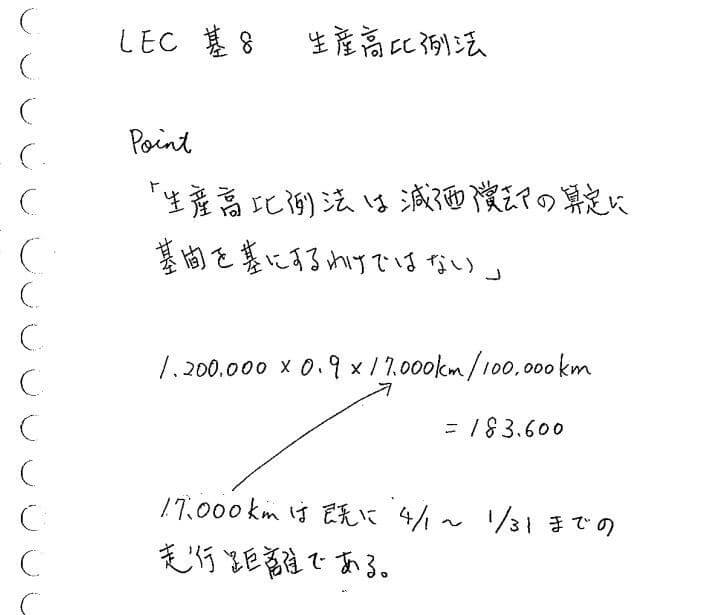 LEC 基8 生産高比例法
Point
「生産高比例法は減価償却の算定に
基間を基にするわけではない」
1.200.000 × 0.9 × 17.000km/100.000km
= 183.600
17.000kmは既に 4/1 ~ 1/31 までの
走行距離である。